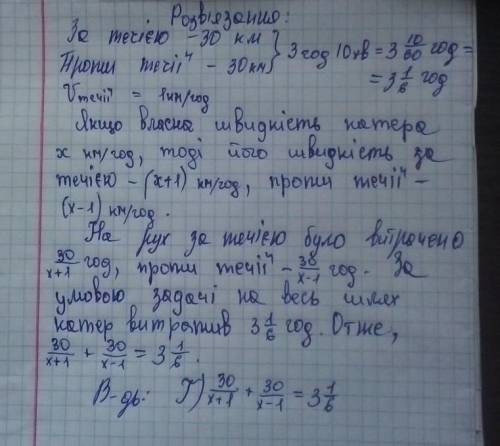 Розв'язання:
За течією – 30 км } 3 год 10 хв = 3 10/60 год =
Проти течії – 30 км = 3 1/6 год
Vтечії = 1 км/год
Якщо власна швидкість катера
x км/год, тоді його швидкість за
течією – (x+1) км/год, проти течії –
(x-1) км/год.
На рух за течією було витрачено
30/x+1 год, проти течії – 30/x-1 год. За
умовою задачі на весь шлях
катер витратив 3 1/6 год. Отже,
30/x+1 + 30/x-1 = 3 1/6.
В-дь: Г) 30/x+1 + 30/x-1 = 3 1/6